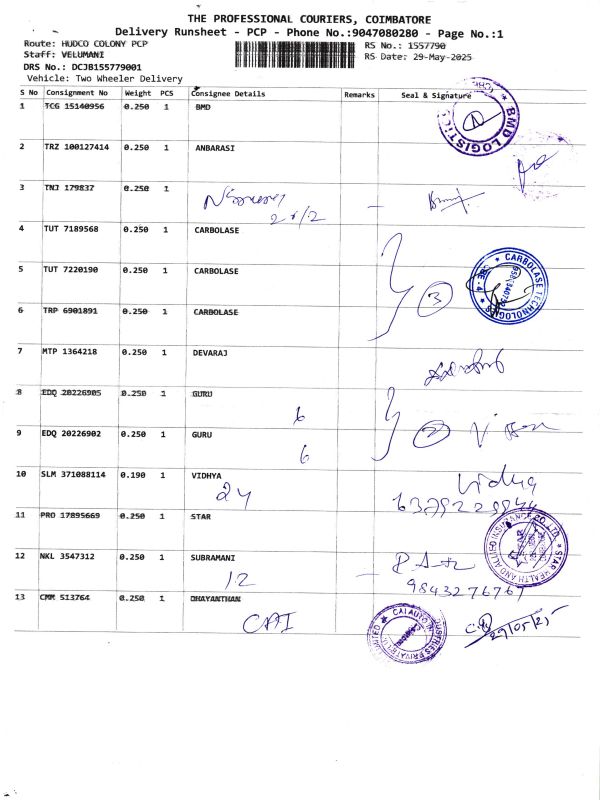 THE PROFESSIONAL COURIERS, COIMBATORE
Delivery Runsheet - PCP - Phone No.:9047080280 - Page No.:1
Route: HUDCO COLONY PCP
RS No.: 1557790
Staff: VELUMANI
RS Date: 29-May-2025
DRS No.: DCJB155779001
Vehicle: Two Wheeler Delivery
S No Consignment No Weight PCS Consignee Details Remarks Seal & Signature
1 TCG 15140956 0.250 1 BMD
BMD LOGISTIC
2 TRZ 100127414 0.250 1 ANBARASI
3 TNJ 179837 0.250 1
4 TUT 7189568 0.250 1 CARBOLASE
5 TUT 7220190 0.250 1 CARBOLASE
CARBOLASE TECHNOLOGIES
3
6 TRP 6901891 0.250 1 CARBOLASE
7 MTP 1364218 0.250 1 DEVARAJ
8 EDQ 20226905 0.250 1 GURU
6
9 EDQ 20226902 0.250 1 GURU
2
6
10 SLM 371088114 0.190 1 VIDHYA
Vidhya
24
11 PRO 17895669 0.250 1 STAR
STAR HEALTH AND ALLIED INSURANCE CO. LTD.
12 NKL 3547312 0.250 1 SUBRAMANI
12
9843276767
13 CMM 513764 0.250 1 DHAYANTHAN
CAI
CAI AUTO INDUSTRIES PRIVATE LIMITED
29/05/25